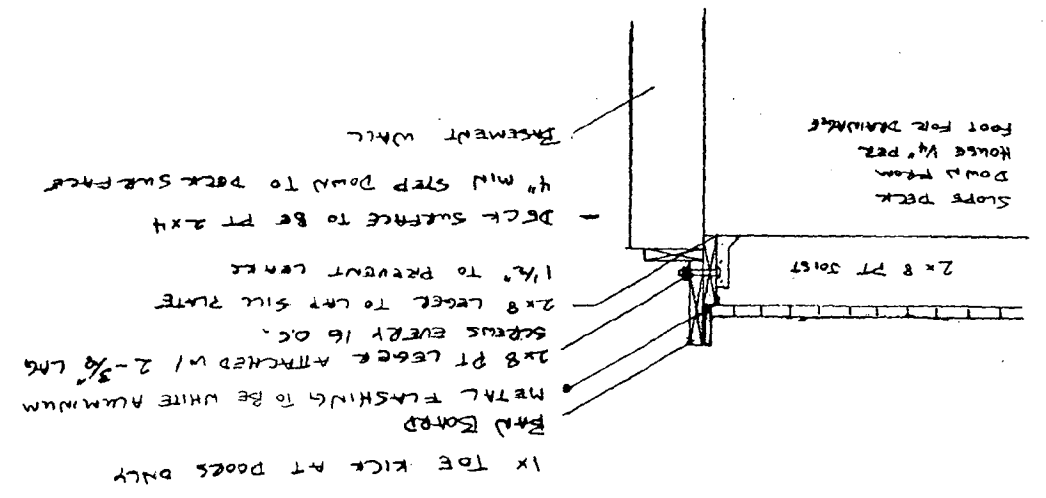 1x TOE KICK AT DOORS ONLY
BAN BOARD
METAL FLASHING TO BE WHITE ALUMINUM
2x8 PT LEGER ATTACHED W/ 2-3/8" LAG
SCREWS EVERY 16 O.C.
2x8 LEGER TO LAP SILL PLATE
1 1/2" TO PREVENT LEAKS
- DECK SURFACE TO BE PT 2x4
4" MIN STEP DOWN TO DECK SURFACE
BASEMENT WALL
2x8 PT JOIST
SLOPE DECK
DOWN FROM
HOUSE 1/4" PER
FOOT FOR DRAINAGE